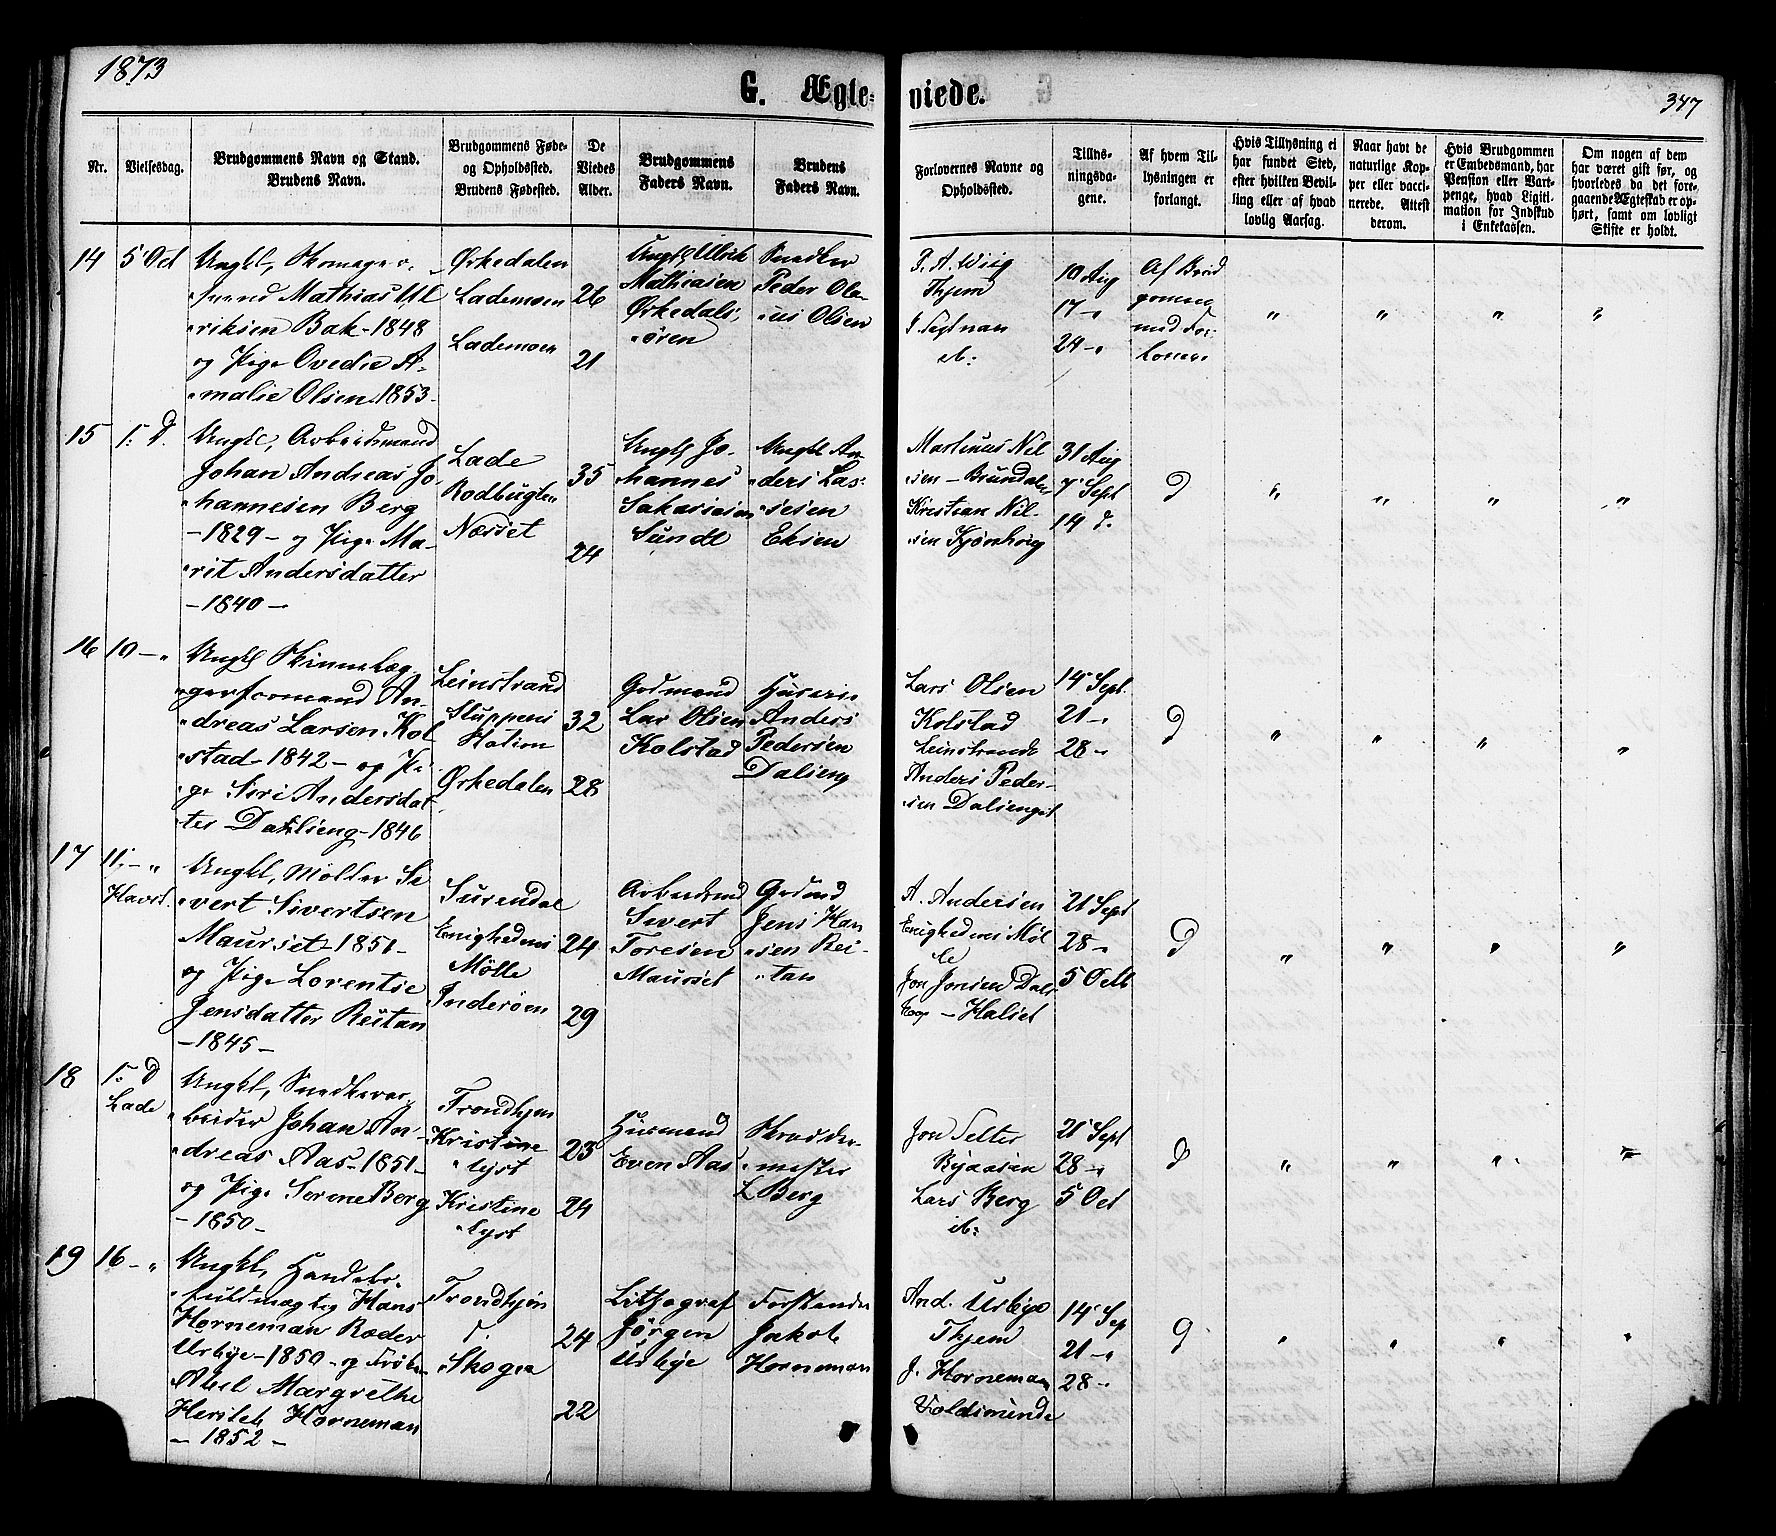 1873
G. Ægte-
viede.
347
Nr.
Vielsesdag.
Brudgommens Navn og Stand.
Brudens Navn.
Brudgommens Føde-
og Opholdssted.
Brudens Fødested.
De
Viedes
Alder.
Brudgommens
Faders Navn.
Brudens
Faders Navn.
Forlovernes Navne og
Opholdssted.
Tillys-
ningsda-
gene.
Af hvem Til-
lysningen er
forlangt.
Hvis Tillysning ei
har fundet Sted,
efter hvilken Bevil-
ling eller af hvad
lovlig Aarsag.
Naar havt de
naturlige Kop-
per eller vacci-
nerede. Attest
derom.
Hvis Brudgommen
er Embedsmand, har
Pension eller Vart-
penge, hvad Ligiti-
mation for Indskud
i Enkekassen.
Om nogen af dem
har været gift før, og
hvorledes da det fore-
gaaende Ægteskab er op-
hørt, samt om lovligt
Skifte er holdt.
14
5 Oct
Ungkl,
svend Mathias Ul
riksen Bak - 1848
og Pige Ovedie A-
malie Olsen. 1853-
Ørkedalen
Lademoen
Lademoen
26
21
Ungkl Ulrik
Mathiasen
Ørkedals-
øren
Snedker
Peder Ola-
us Olsen
P. A. Wiig
Thjem
ib:
10 Aug
17 - "
24 - "
Af Brud
gommen
med For-
lovere
" " " "
15
d: D.
Ungkl, Arbeidsmand
Johan Andreas Jo-
hannesen Berg
- 1829 - og Pige Ma-
rit Andersdatter
- 1840 -
Lade
Rodbugten
Nesset
35
24
Ungkl Jo-
hannes
Sakariasen
Sundt
Ungkl An-
ders Las-
sesen
Eksen
Martinus Nil
sen - Brundalen
Kristian Nil-
sen
31 Aug
7 Sept
14 d.
D
" " " "
16
10 - "
Ungkl Skinnelæg-
gerformand An-
dreas Larsen Kol
stad - 1842 - og Pi
ge Seri Andersdat
ter Dahlseng - 1846
Leinstrand
Sluppens
Station
Ørkedalen
32
28
Gdmand
Lar Olsen
Kolstad
Huseier
Anders
Pedersen
Dalseng
Lars Olsen
Kolstad
Leinstrande
Anders Peder-
sen Dalsenget
14 Sept.
21 - "
28 - "
D
" " " "
17
11 - "
Havst.
Ungkl, Møller Si
vert Sivertsen
Maurset - 1851 -
og Pige Lorentse
Jensdatter Reitan
- 1845 -
Surendal
Enighedens
Mølle
Inderøen
24
29
Arbeidsmd
Sivert
Toresen
Maurset
Gdmd
Jens Han
sen Rei-
tan
A. Andersen
Enighedens Møl
le
Jon Jonsen Dals
- Halset
21 Sept
28 - "
5 Octb
D
" " " "
18
d: D
Lade
Ungkl, Snedkerar-
beider Johan An-
dreas Aas - 1851 -
og Pige Serene Berg
- 1850 -
Trondhjem
Kristine
lyst
Kristine
lyst
23
24
Husmand
Even Aas
Skrædder-
mester
L Berg
Jon Selter
Byaasen
Lars Berg
ib:
21 Sept
28 - "
5 Oct
D
" " " "
19
16 - "
Ungkl, Handels-
fuldmægtig Hans
Horneman Roder
Usbye - 1850 - og Frøken
Abel Margrethe
Horneman
- 1852 -
Trondhjem
d.
Skogn
24
22
Lithograf
Jørgen
Usbye
Forstander
Jakob
Horneman
And. Usbye
Thjem
J. Horneman
Voldsminde
14 Sep
21 - "
28 - "
D
" " " "